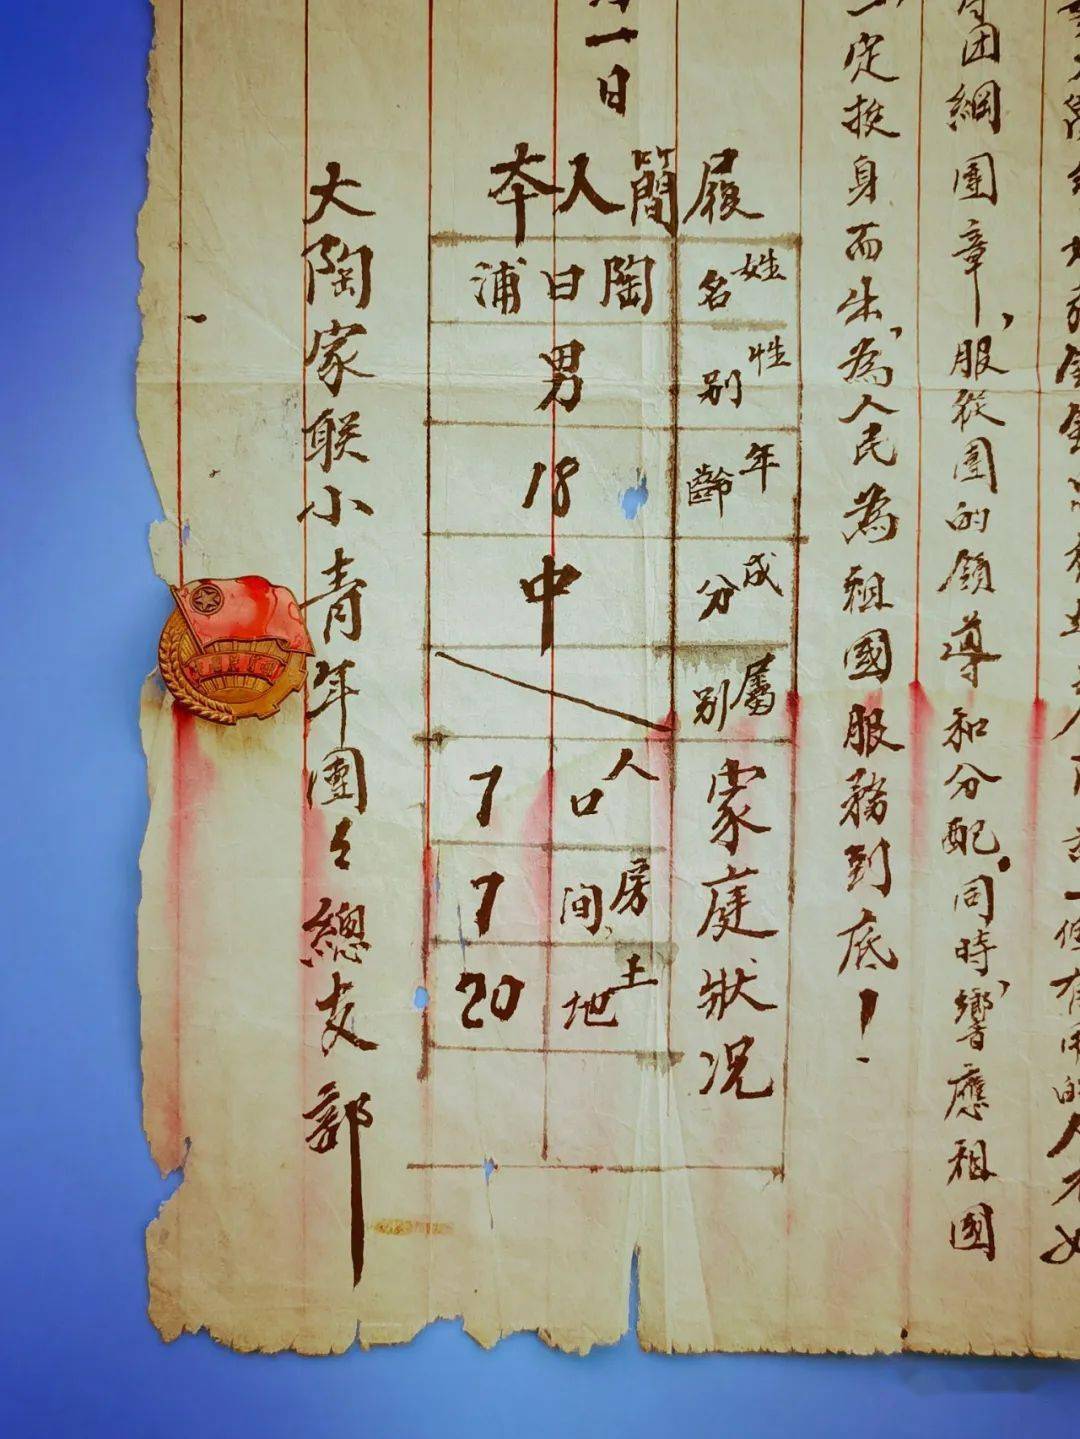 有用的人不
团綱團章，服從團的領導和分配。同時，響應祖國
一定挺身而出，為人民為祖國服務到底！
一日
本人簡履
姓名
陶日浦
性別
男
年齡
18
成分
中
屬別
家庭狀況
人口
7
房间
7
土地
20
大陶家联小青年團々總支部